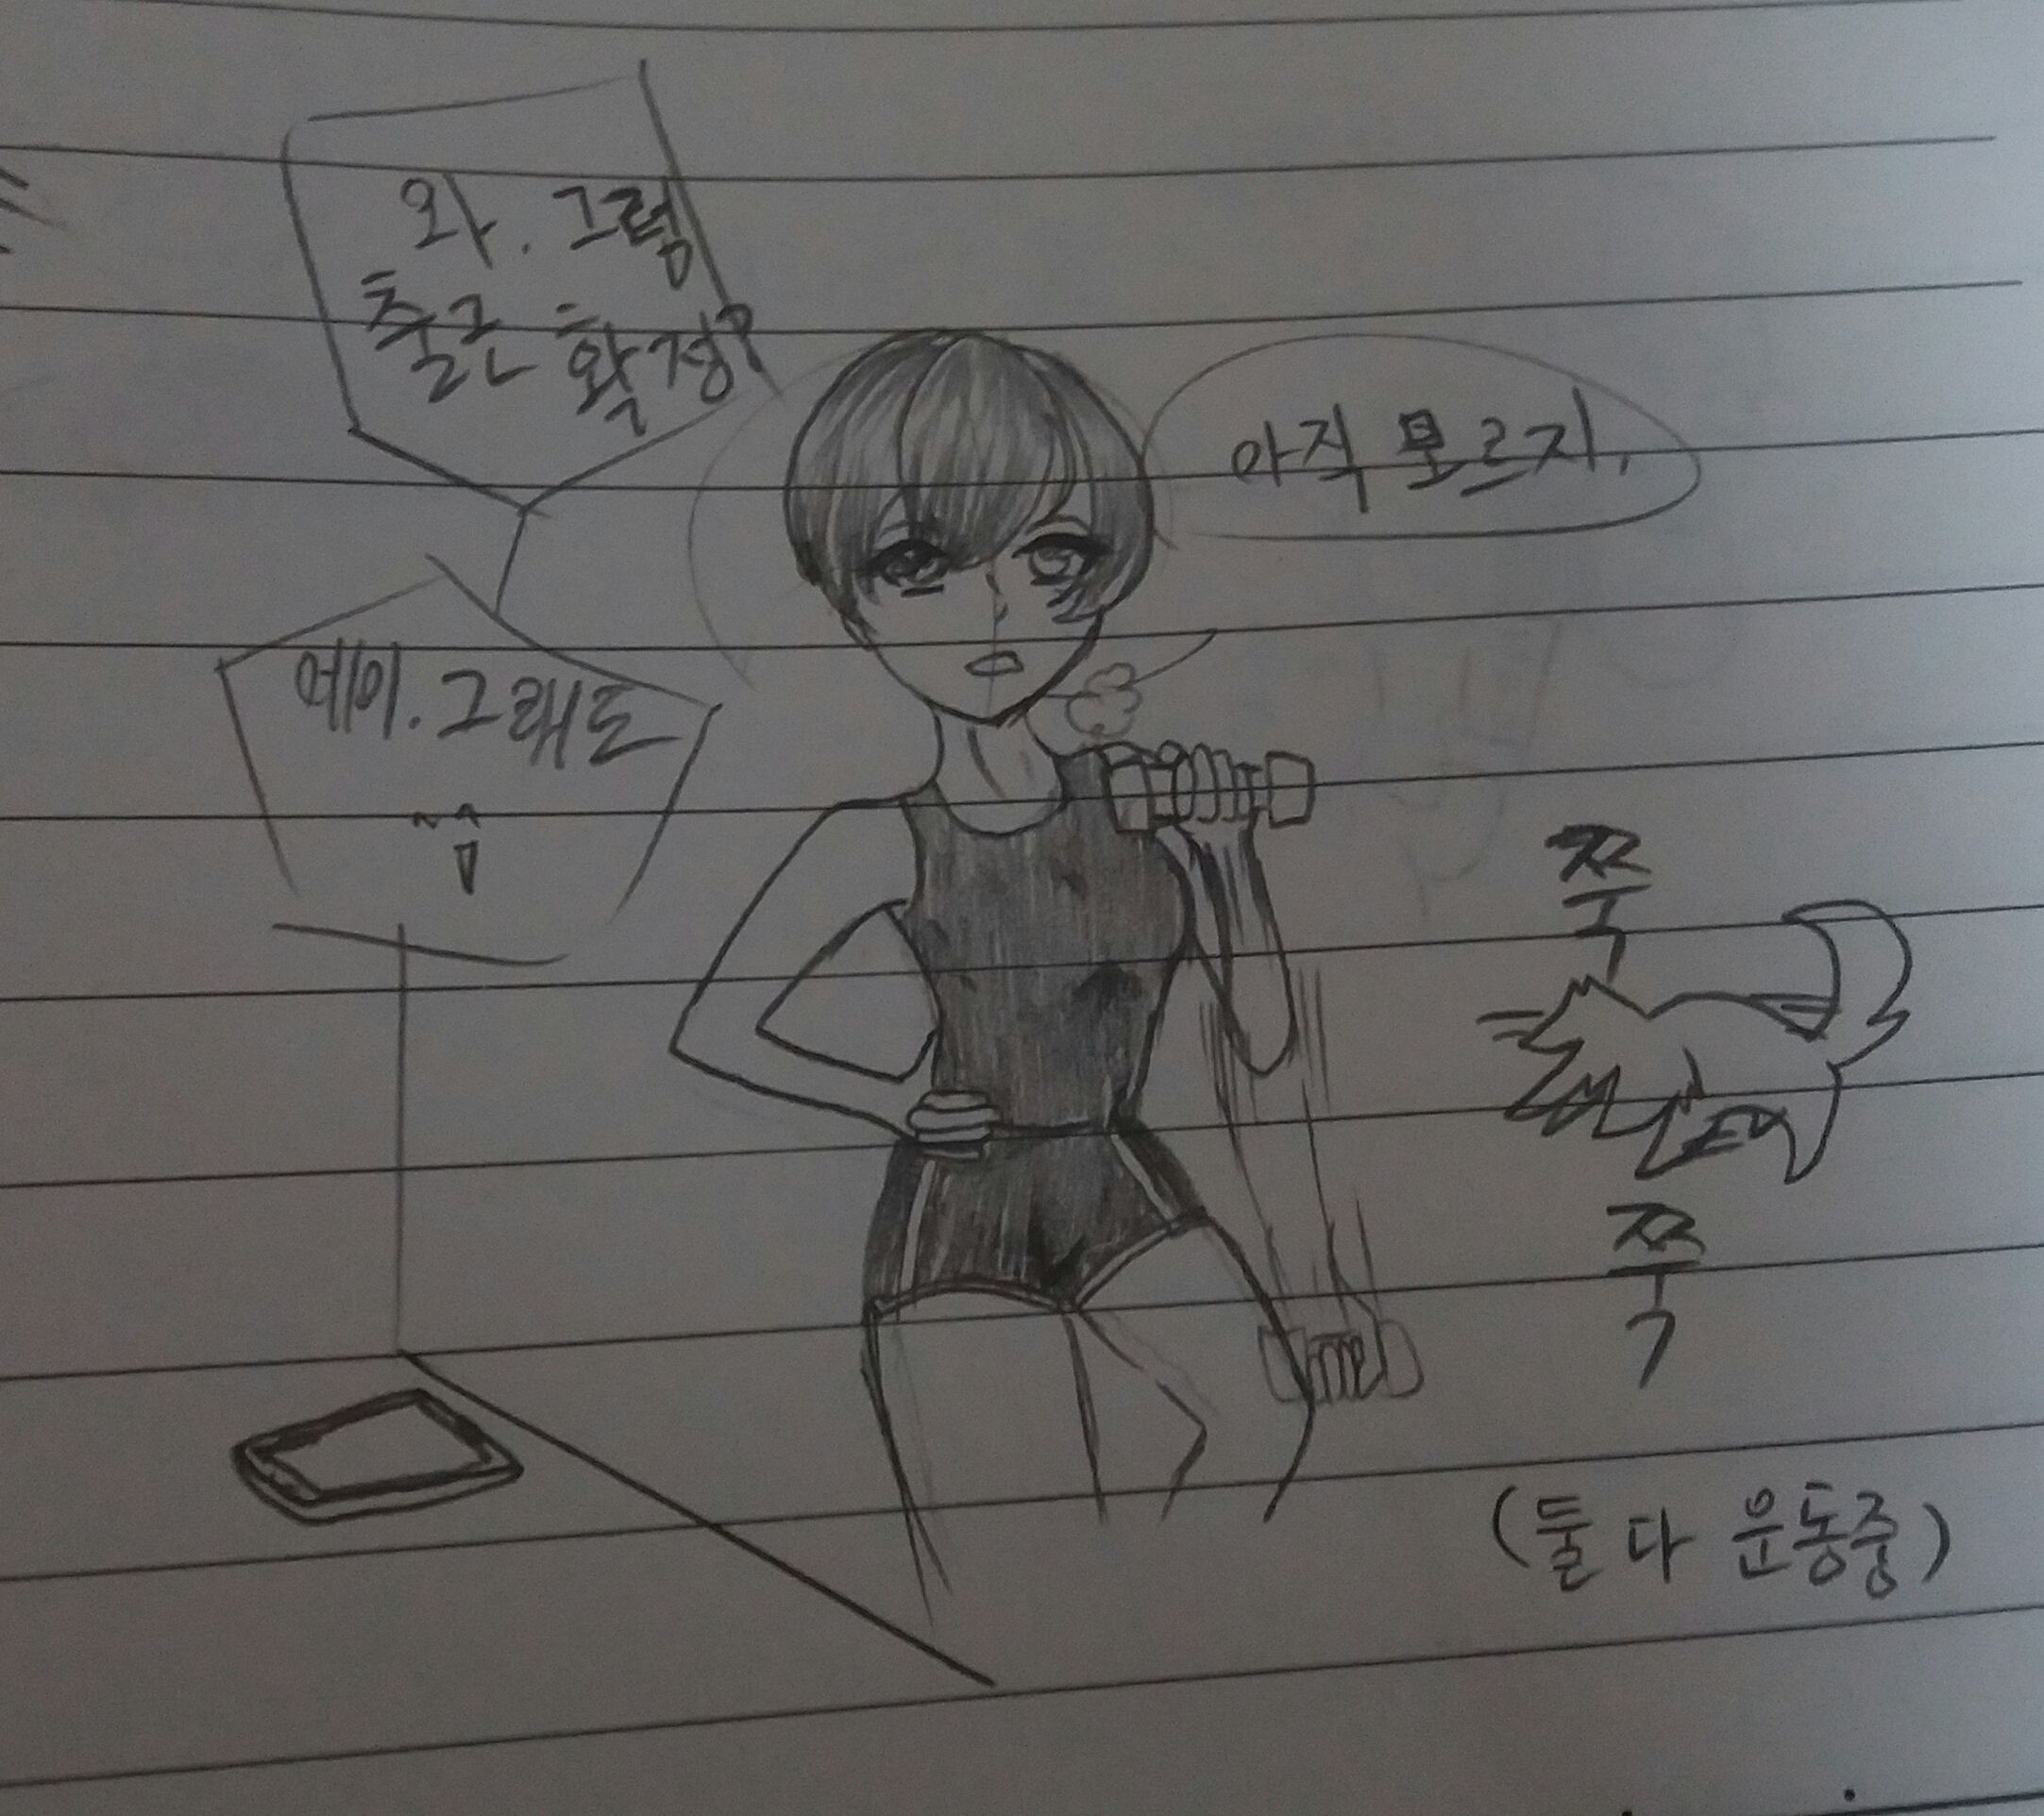 와. 그럼
출근 확정?
아직 모르지.
에이. 그래도
쭉
쭉
(둘 다 운동중)